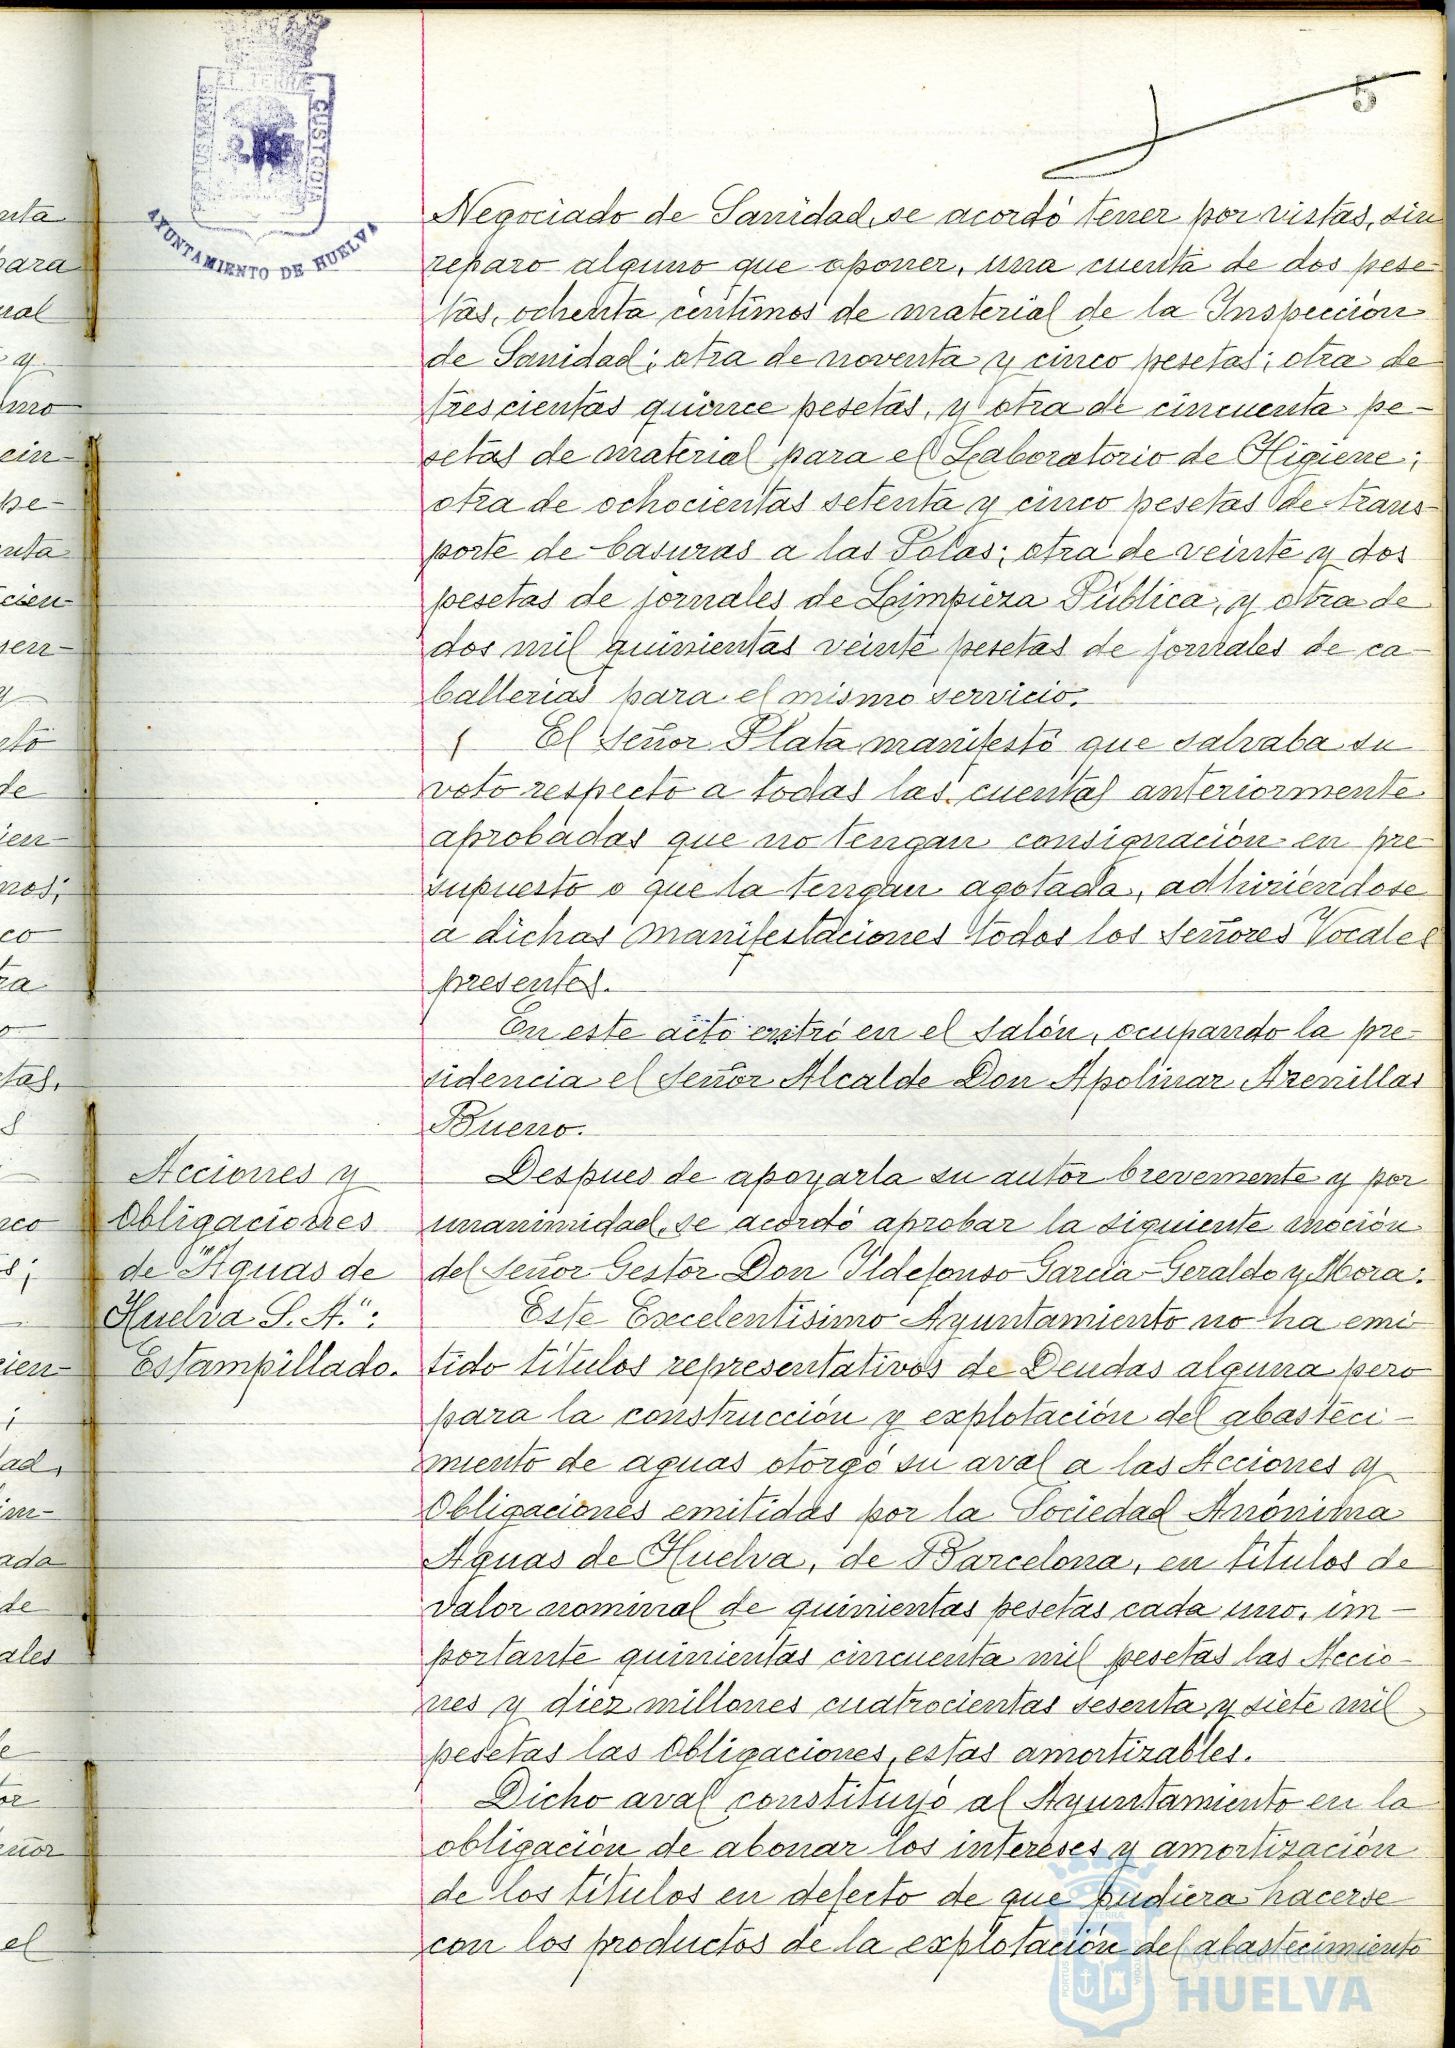 5
PORTUS MARIS
ET TERRAE
CUSTODIA
AYUNTAMIENTO DE HUELVA
Negociado de Sanidad, se acordó tener por vistas, sin
reparo alguno que oponer, una cuenta de dos pese-
tas, ochenta céntimos de material de la Inspección
de Sanidad; otra de noventa y cinco pesetas; otra de
trescientas quince pesetas, y otra de cincuenta pe-
setas de material para el Laboratorio de Higiene;
otra de ochocientas setenta y cinco pesetas de trans-
porte de basuras a las Polas; otra de veinte y dos
pesetas de jornales de Limpieza Pública, y otra de
dos mil quinientas veinte pesetas de jornales de ca-
ballerias para el mismo servicio.
El Señor Plata manifestó que salvaba su
voto respecto a todas las cuentas anteriormente
aprobadas que no tengan consignación en pre-
supuesto o que la tengan agotada, adhiriéndose
a dichas manifestaciones todos los Señores Vocales
presentes.
En este acto entró en el Salón, ocupando la pre-
sidencia el Señor Alcalde Don Apolinar Arenillas
Bueno.
Acciones y
Obligaciones
de "Aguas de
Huelva S. A.":
Estampillado.
Despues de apoyarla su autor brevemente y por
unanimidad, se acordó aprobar la siguiente moción
del Señor Gestor Don Ildefonso Garcia-Geraldo y Mora:
Este Excelentisimo Ayuntamiento no ha emi-
tido títulos representativos de Deudas alguna pero
para la construcción y explotación del abasteci-
miento de aguas otorgó su aval a las Acciones y
Obligaciones emitidas por la Sociedad Anónima
Aguas de Huelva, de Barcelona, en títulos de
valor nominal de quinientas pesetas cada uno, im-
portante quinientas cincuenta mil pesetas las Accio-
nes y diez millones cuatrocientas sesenta y siete mil
pesetas las Obligaciones, estas amortizables.
Dicho aval constituyó al Ayuntamiento en la
obligación de abonar los intereses y amortización
de los títulos en defecto de que pudiera hacerse
con los productos de la explotación del abastecimiento
Ayuntamiento de
HUELVA